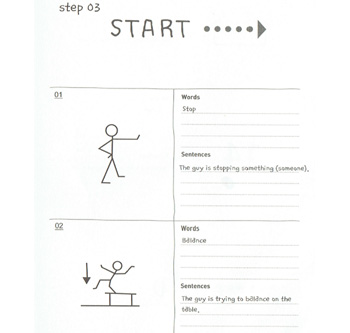 step 03
START
01
Words
Stop
Sentences
The guy is stopping something (someone).
02
Words
Balance
Sentences
The guy is trying to balance on the
table.